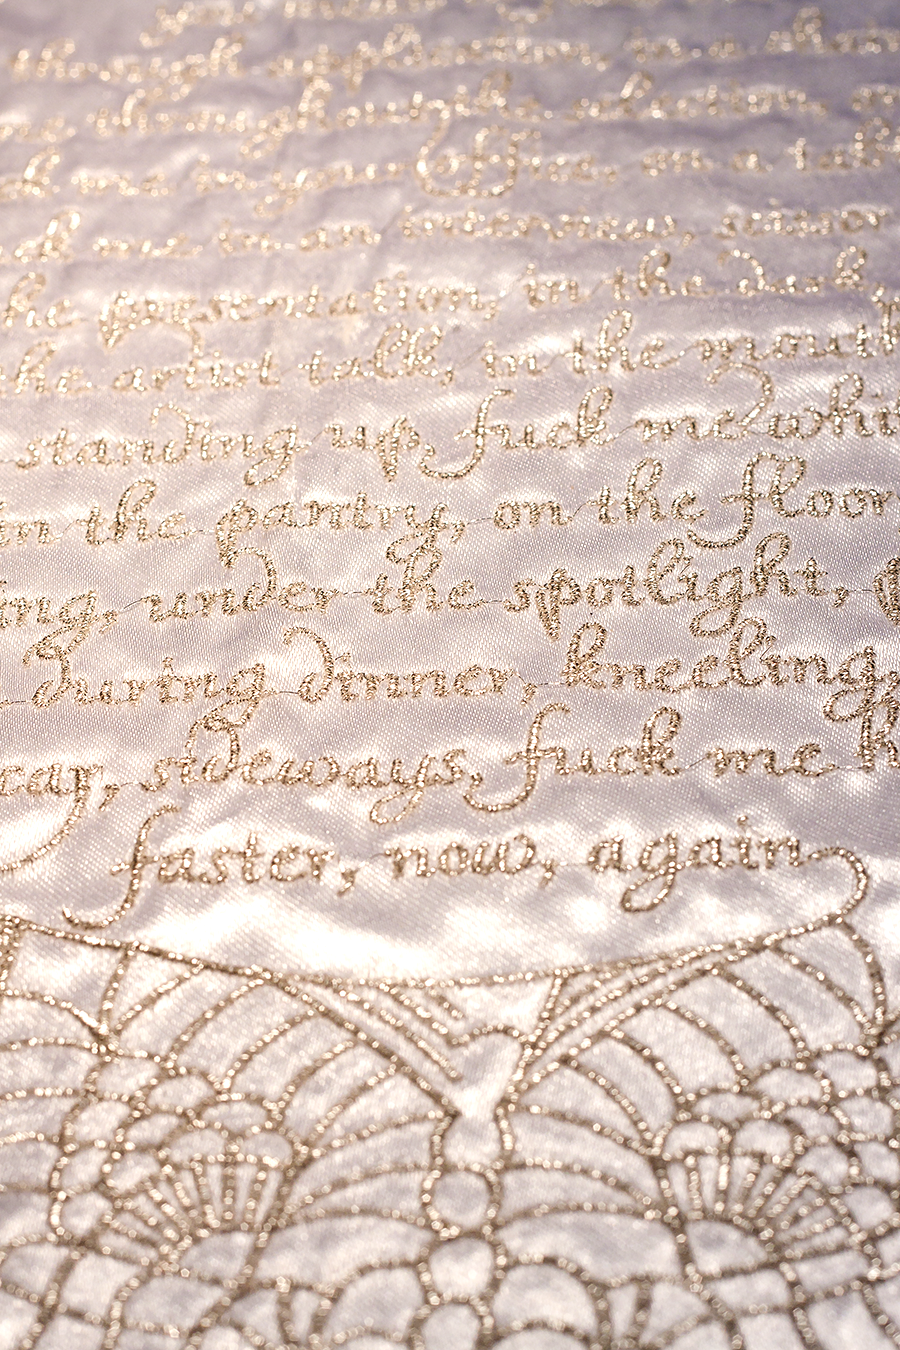 through application, in a
me throughout the selection,
me in your office, on a
me in an interview, session
he presentation, in the dark,
he artist talk, in the mouth
standing up, fuck me whi
in the pantry, on the floor
ng, under the spotlight,
during dinner, kneeling,
ear, sideways, fuck me h
faster, now, again